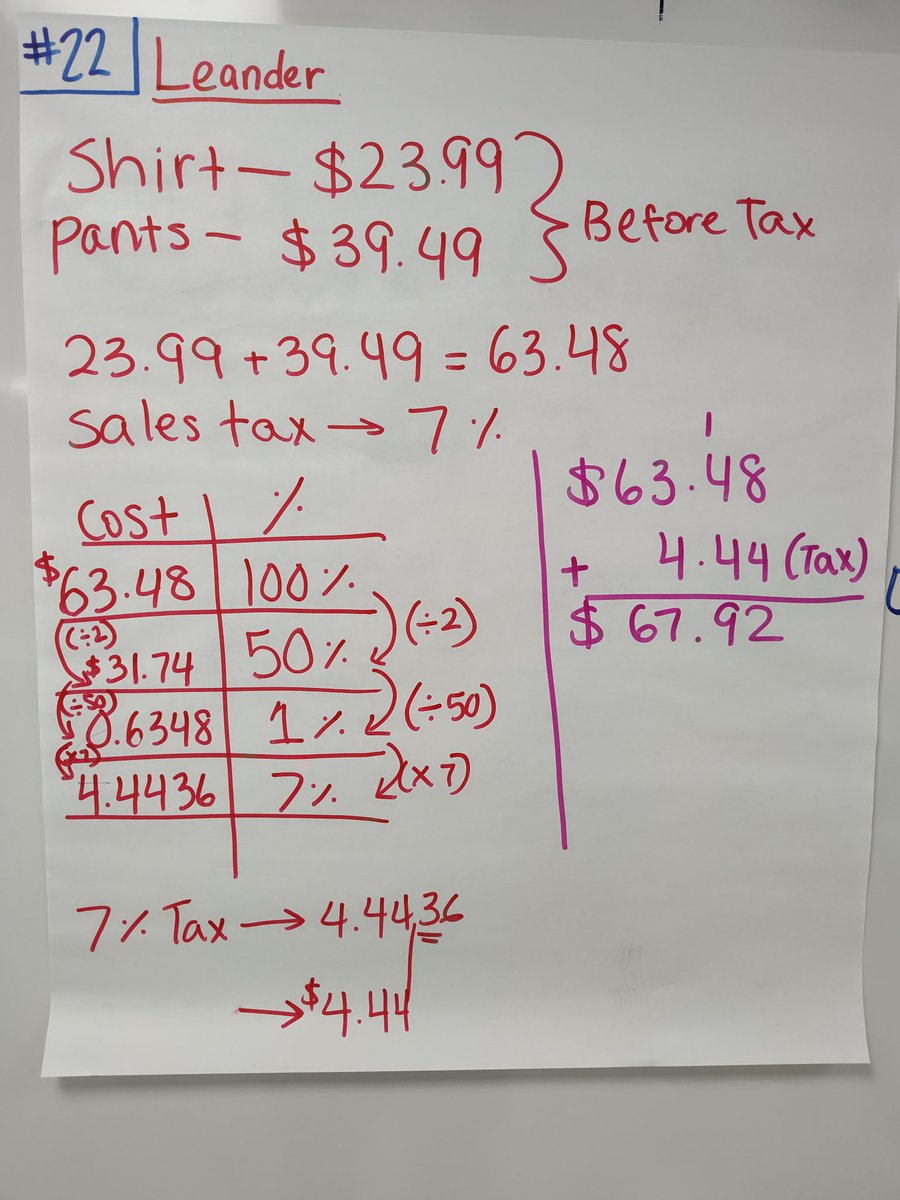 #22 Leander
Shirt — $23.99
Pants — $39.49
Before Tax
23.99 + 39.49 = 63.48
Sales tax → 7%
Cost %
$63.48 100%
(÷2) (÷2)
$31.74 50%
(÷50) (÷50)
0.6348 1%
(x7) (x7)
4.4436 7%
7% Tax → 4.4436
→ $4.44
1
$63.48
+ 4.44 (Tax)
$67.92